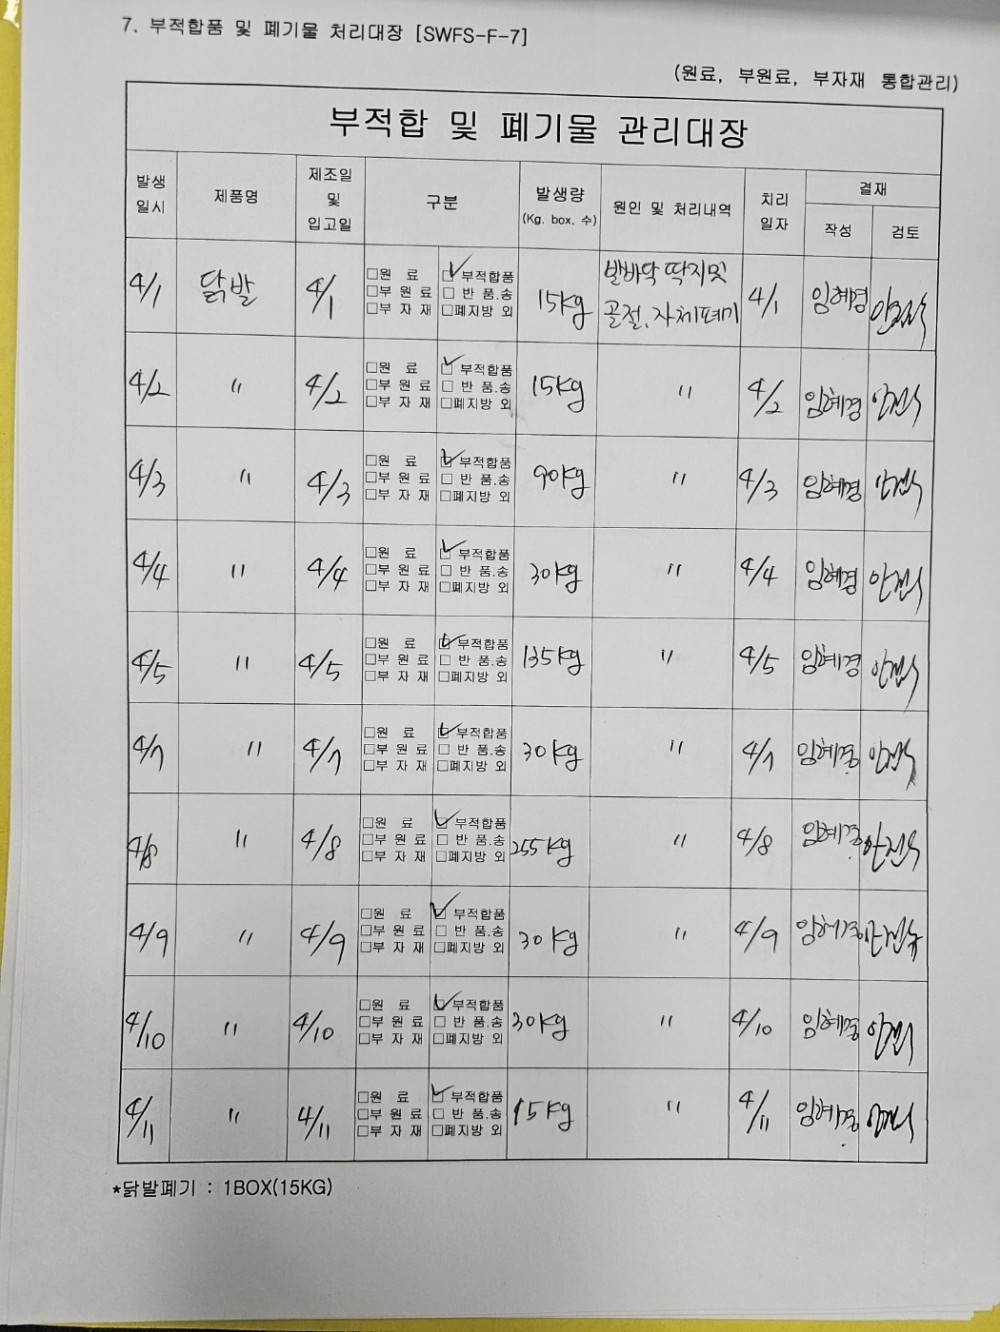 7. 부적합품 및 폐기물 처리대장 [SWFS-F-7]
(원료, 부원료, 부자재 통합관리)
부적합 및 폐기물 관리대장
발생 일시 제품명 제조일 및 입고일 구분 발생량 (Kg. box. 수) 원인 및 처리내역 치리 일자 결재 작성 검토
4/1 닭발 4/1 □원 료 ☑부적합품 15kg 발바닥 딱지및 4/1 임혜경
□부 원 료 □ 반 품.송 골절, 자체폐기
□부 자 재 □폐지방 외
4/2 〃 4/2 □원 료 ☑부적합품 15kg 〃 4/2 임혜경
□부 원 료 □ 반 품.송
□부 자 재 □폐지방 외
4/3 〃 4/3 □원 료 ☑부적합품 90kg 〃 4/3 임혜경
□부 원 료 □ 반 품.송
□부 자 재 □폐지방 외
4/4 〃 4/4 □원 료 ☑부적합품 30kg 〃 4/4 임혜경
□부 원 료 □ 반 품.송
□부 자 재 □폐지방 외
4/5 〃 4/5 □원 료 ☑부적합품 135kg 〃 4/5 임혜경
□부 원 료 □ 반 품.송
□부 자 재 □폐지방 외
4/7 〃 4/7 □원 료 ☑부적합품 30kg 〃 4/7 임혜경
□부 원 료 □ 반 품.송
□부 자 재 □폐지방 외
4/8 〃 4/8 □원 료 ☑부적합품 255kg 〃 4/8 임혜경
□부 원 료 □ 반 품.송
□부 자 재 □폐지방 외
4/9 〃 4/9 □원 료 ☑부적합품 30kg 〃 4/9 임혜경
□부 원 료 □ 반 품.송
□부 자 재 □폐지방 외
4/10 〃 4/10 □원 료 ☑부적합품 30kg 〃 4/10 임혜경
□부 원 료 □ 반 품.송
□부 자 재 □폐지방 외
4/11 〃 4/11 □원 료 ☑부적합품 15kg 〃 4/11 임혜경
□부 원 료 □ 반 품.송
□부 자 재 □폐지방 외
*닭발폐기 : 1BOX(15KG)